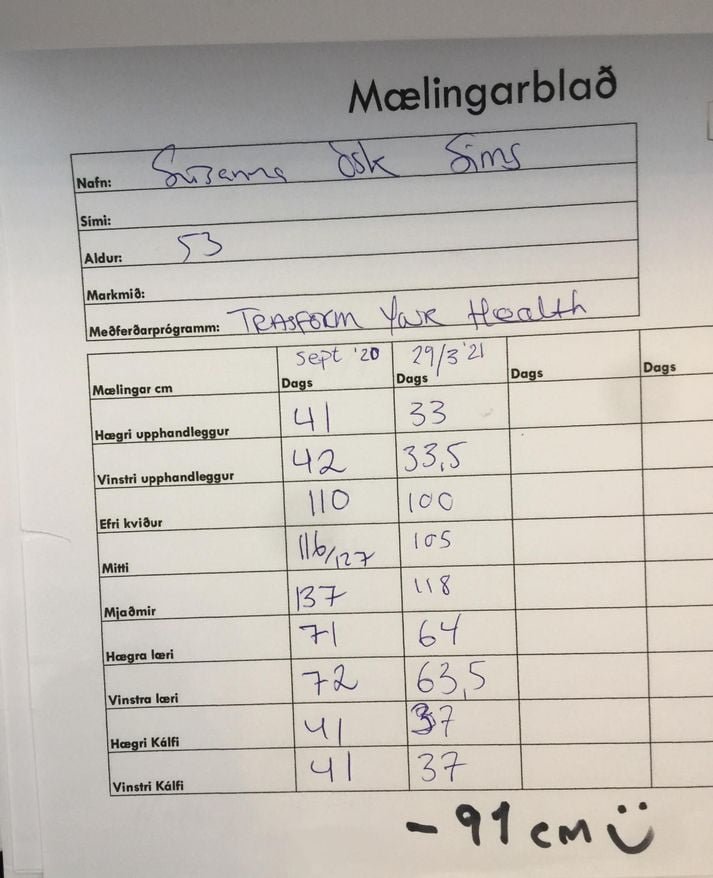 Mælingarblað
Nafn: Suzanna Ósk Sims
Sími:
Aldur: 53
Markmið:
Meðferðarprógramm: TRASFORM YOUR Health
Mælingar cm Sept '20 Dags 29/3 '21 Dags Dags Dags
Hægri upphandleggur 41 33
Vinstri upphandleggur 42 33,5
Efri kviður 110 100
Mitti 116/127 105
Mjaðmir 137 118
Hægra læri 71 64
Vinstra læri 72 63,5
Hægri Kálfi 41 37
Vinstri Kálfi 41 37
- 91 cm